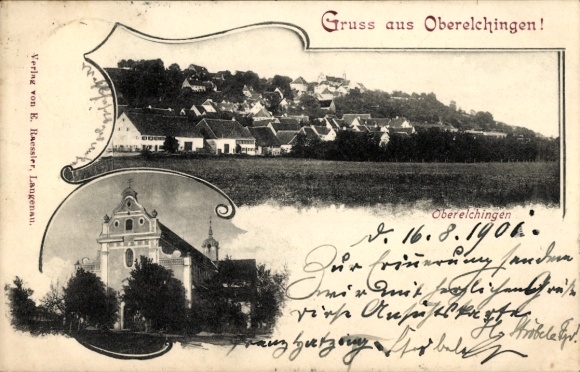 Gruss aus Oberelchingen!
Verlag von E. Raessler, Langenau.
Oberelchingen
d. 16.8.1901.
Zur Erinnerung senden
wir mit herzlichen Grüße
diese Ansichtskarte
Franz
Ströbele